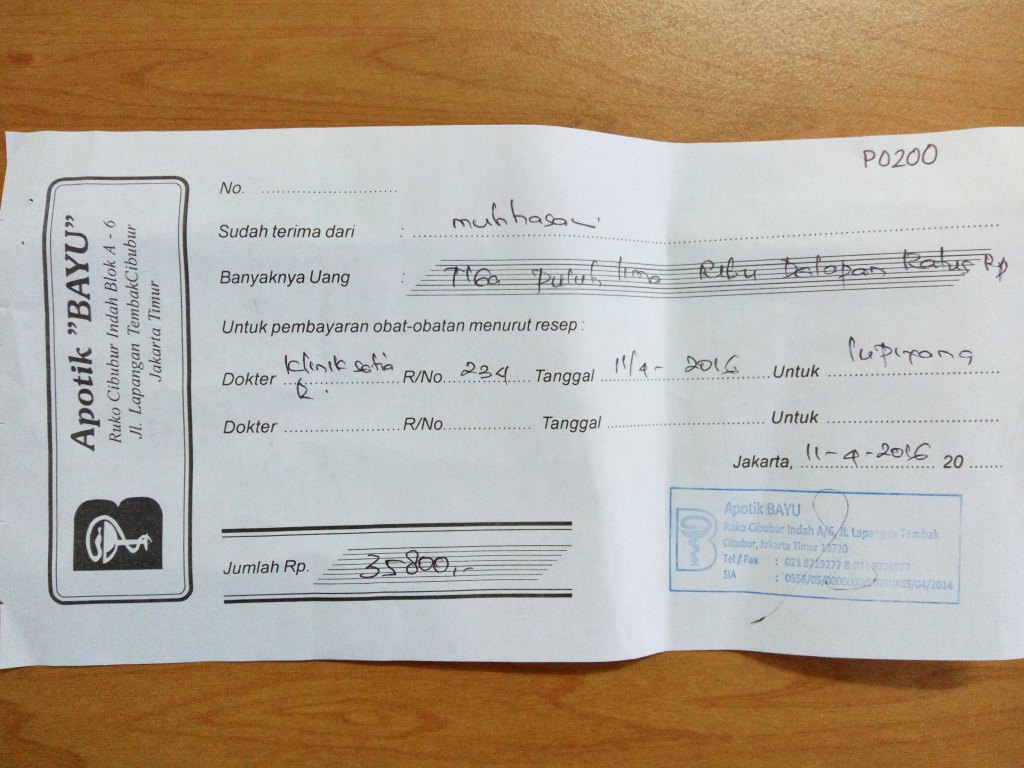 P0200
Apotik "BAYU"
Ruko Cibubur Indah Blok A - 6
Jl. Lapangan TembakCibubur
Jakarta Timur
No. ....................
Sudah terima dari :
Banyaknya Uang : Tiga puluh lima Ribu Delapan Ratus Rp
Untuk pembayaran obat-obatan menurut resep :
Dokter Klinik R/No. 234 Tanggal 11/4 - 2016 Untuk
Dokter .................... R/No. .................... Tanggal .................... Untuk ....................
Jakarta, 11-4-2016 20 .......
Jumlah Rp. 35.800,-
Apotik BAYU
Ruko Cibubur Indah A/6, Jl. Lapangan Tembak
Cibubur, Jakarta Timur 13720
Tel / Fax : 021 8719277 &
SIA :